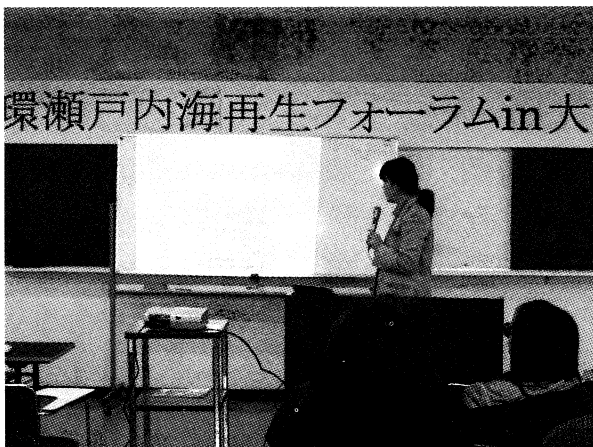 環瀬戸内海再生フォーラムin大